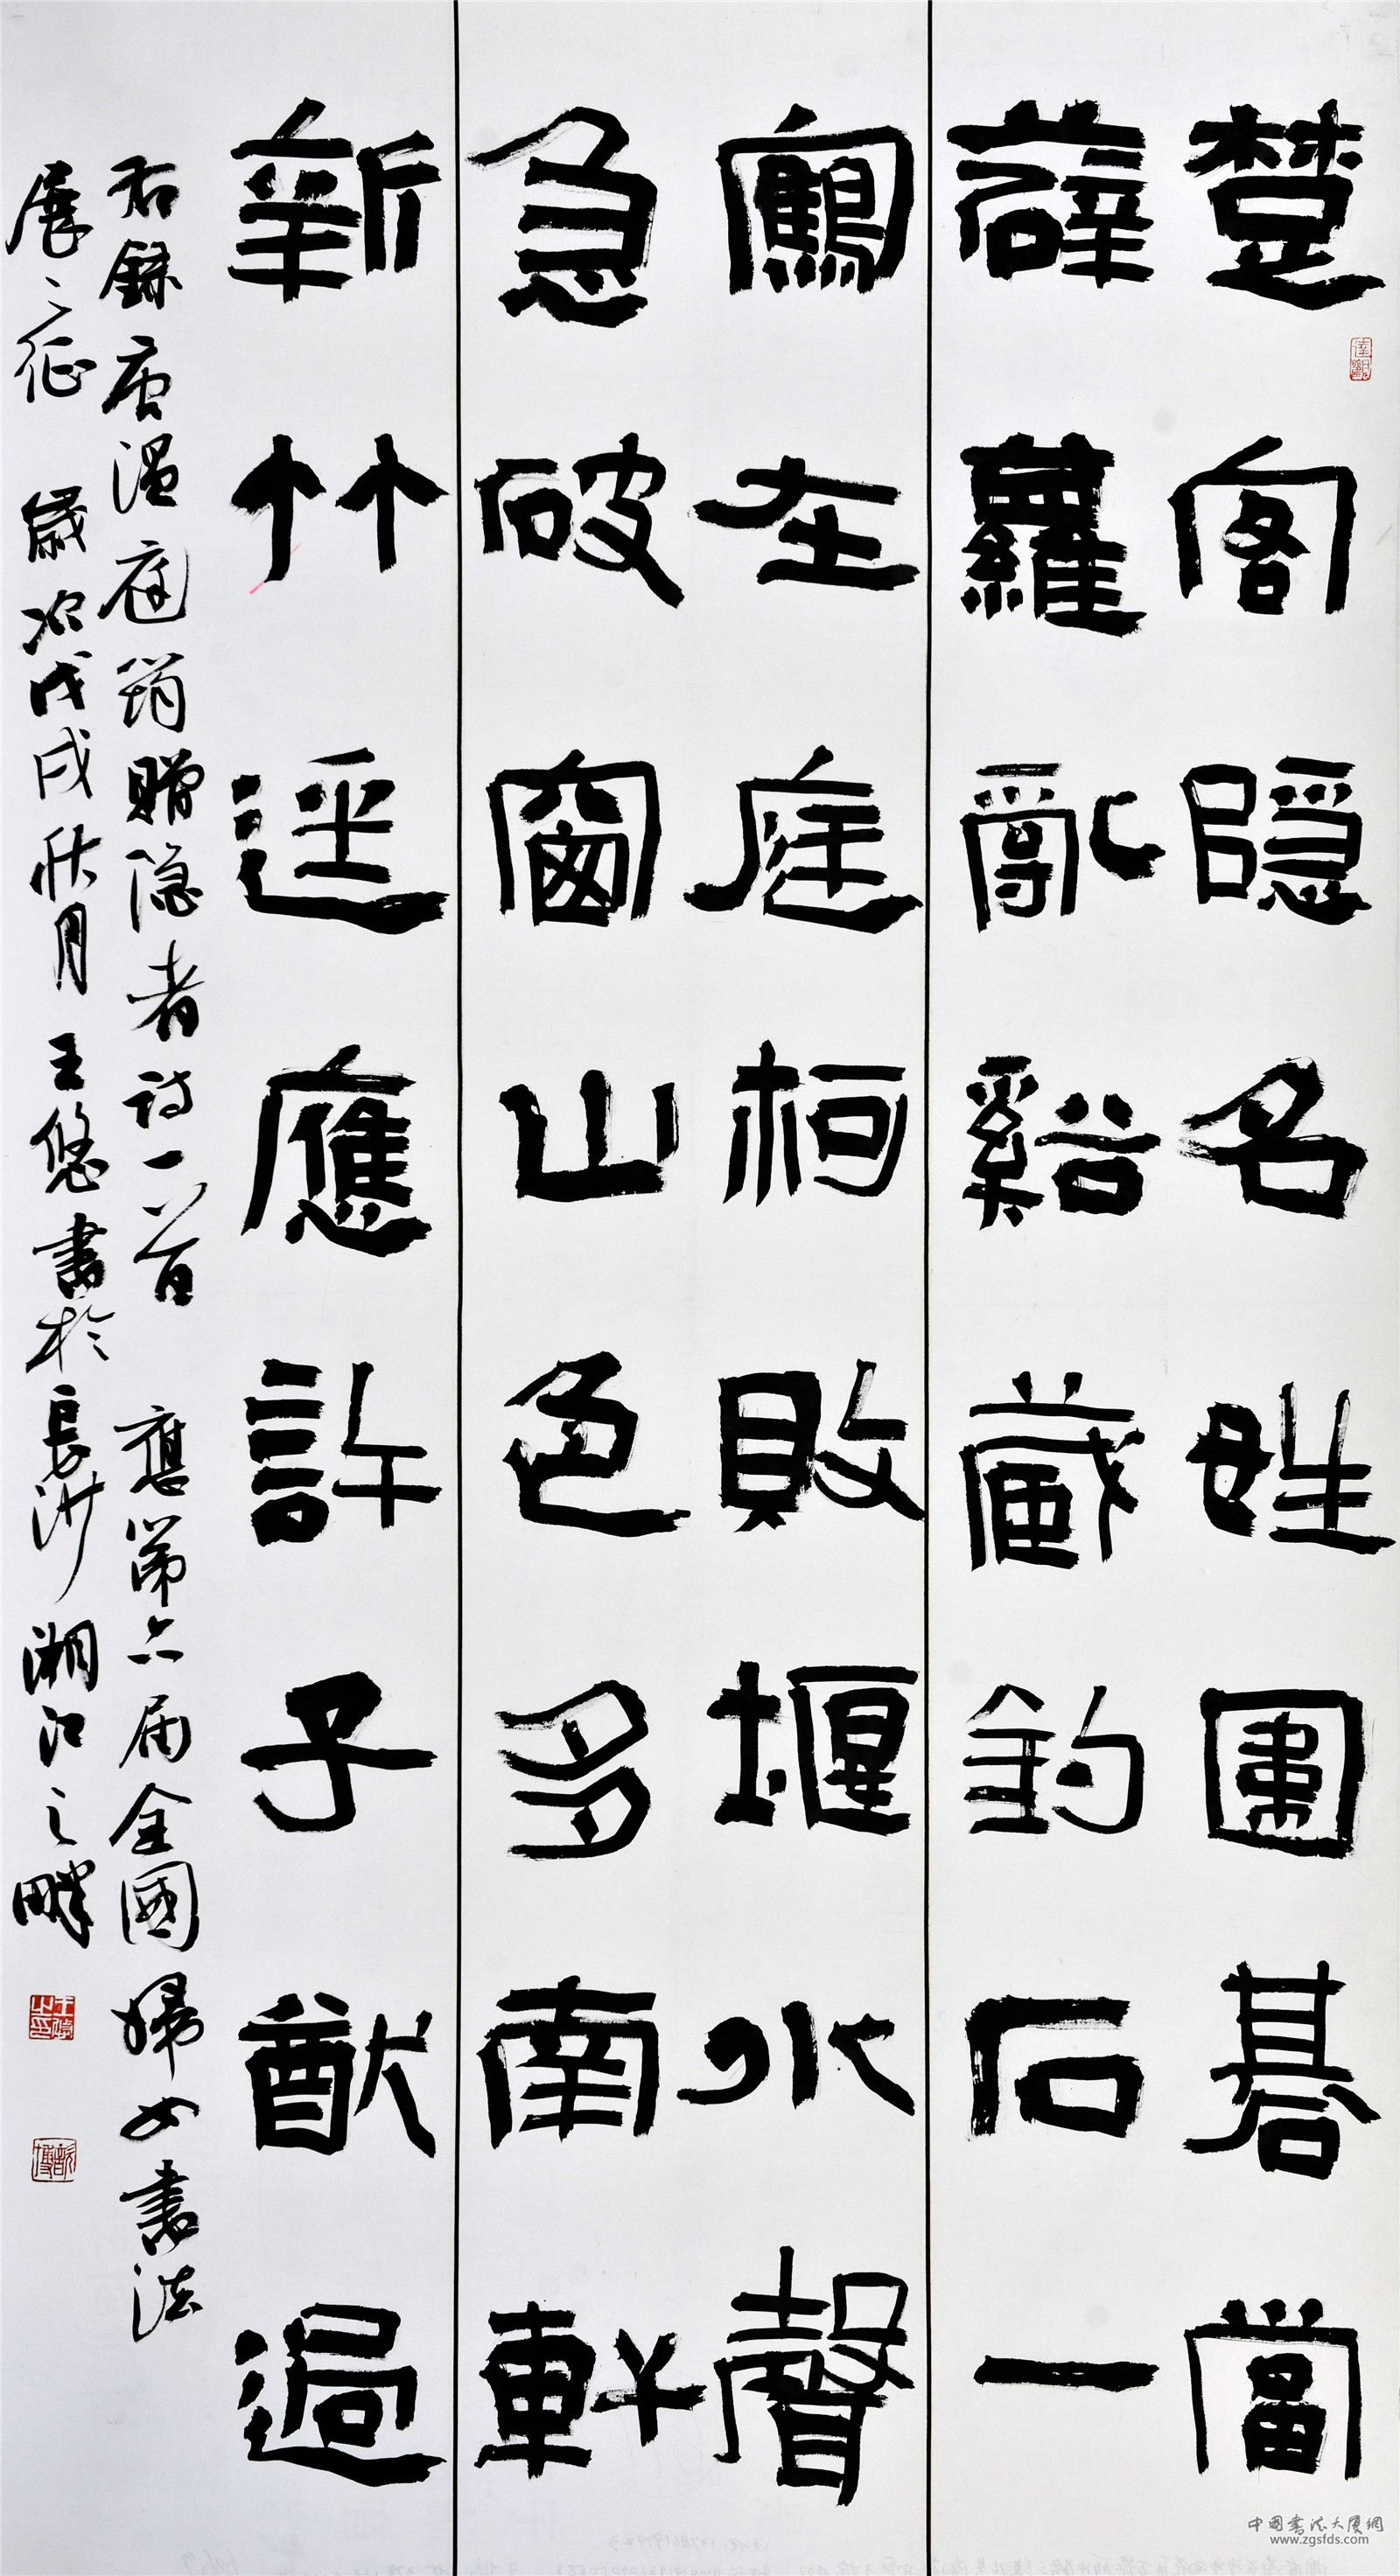 楚客隱名姓圍碁當
薜蘿亂谿藏釣石一
鶴在庭柯敗堰水聲
急破窗山色多南軒
新竹逕應許子猷過
右錄唐溫庭筠贈隱者詩一首 應第六届全國婦女書法
展之征 歲次戊戌秋月 王悠書於長沙湘江之畔
達觀
中國書法大廈網
www.zgsfds.com